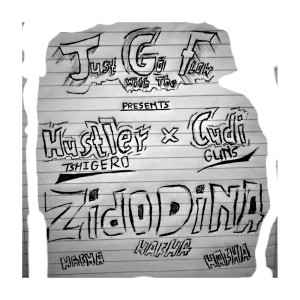 Just Go
with the Flow
PRESENTS
Hustler x Cudi
TSHIGERO GUNS
ZidODiNA
HAFHA
HAFHA HAFHA